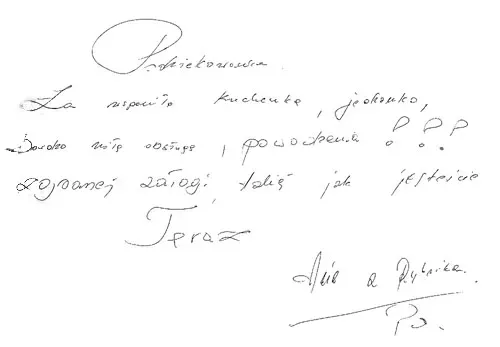 Podziekowania
Za kuchenkę, jedzonko,
Bardzo miłą obsługę, powodzenia !!!
zgranej załogi, jak jesteście
Teraz
Ania z Rybnika.